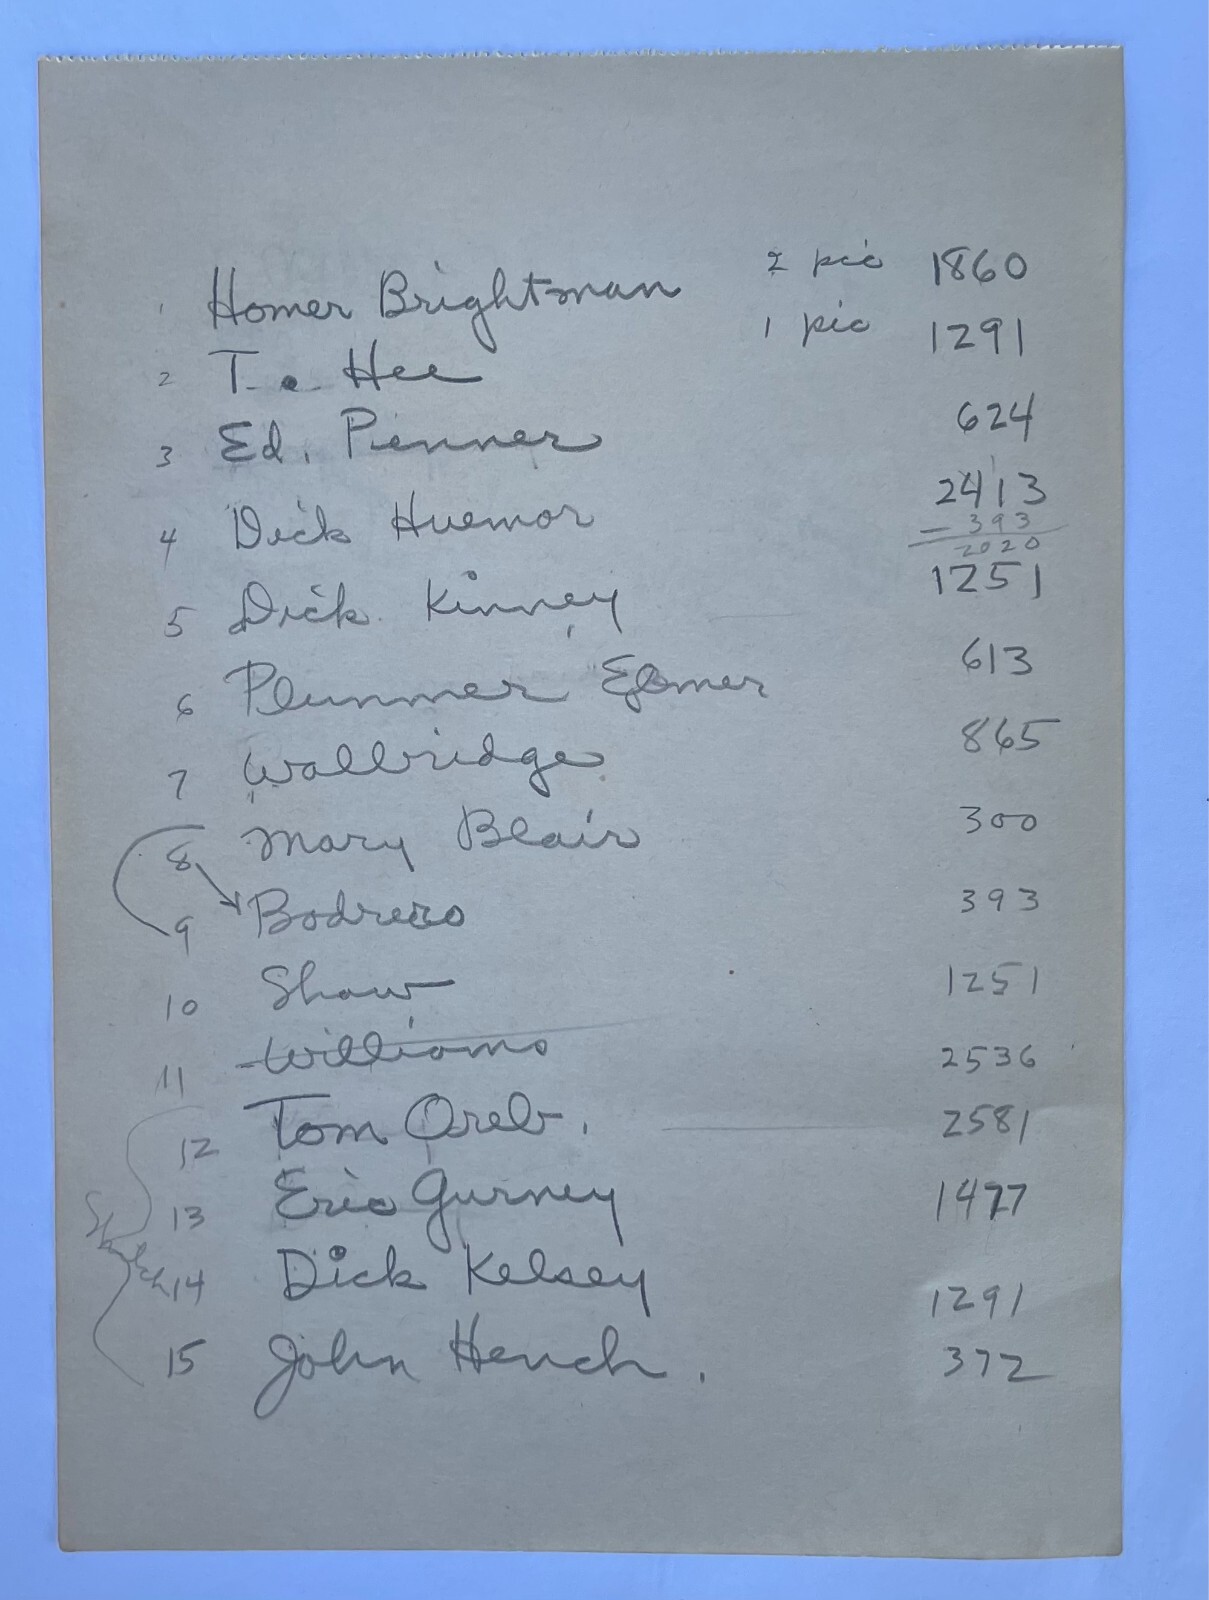 1 Homer Brightman 2 pic 1860
2 T. Hee 1 pic 1291
3 Ed. Penner 624
4 Dick Huemor 2413
- 393
2020
5 Dick Kinney 1251
6 Plummer Elmer 613
7 Walbridge 865
8 Mary Blair 300
9 Bodrero 393
10 Shaw 1251
11 Williams 2536
12 Tom Oreb. 2581
13 Eric Gurney 1477
14 Dick Kelsey 1291
15 John Hench. 372